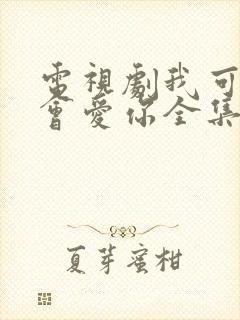 電視劇我可
會愛你全集
夏芽蜜柑